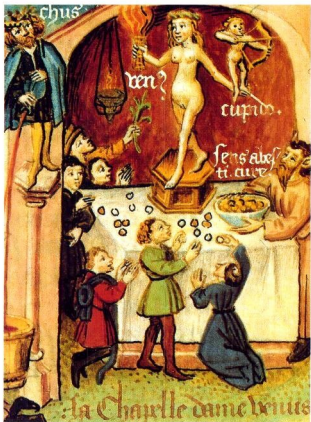 chus
ven9
cupido.
sens abes
ti. cure
la Chapelle dame venus